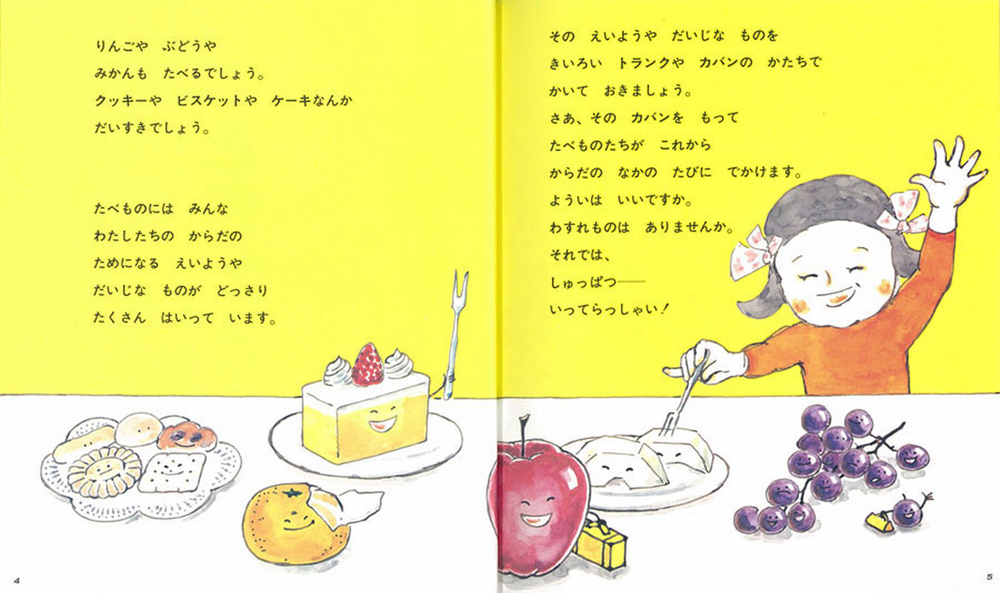 りんごや　ぶどうや
みかんも　たべるでしょう。
クッキーや　ビスケットや　ケーキなんか
だいすきでしょう。
たべものには　みんな
わたしたちの　からだの
ためになる　えいようや
だいじな　ものが　どっさり
たくさん　はいって　います。
4
その　えいようや　だいじな　ものを
きいろい　トランクや　カバンの　かたちで
かいて　おきましょう。
さあ、その　カバンを　もって
たべものたちが　これから
からだの　なかの　たびに　でかけます。
よういは　いいですか。
わすれものは　ありませんか。
それでは、
しゅっぱつ——
いってらっしゃい!
5